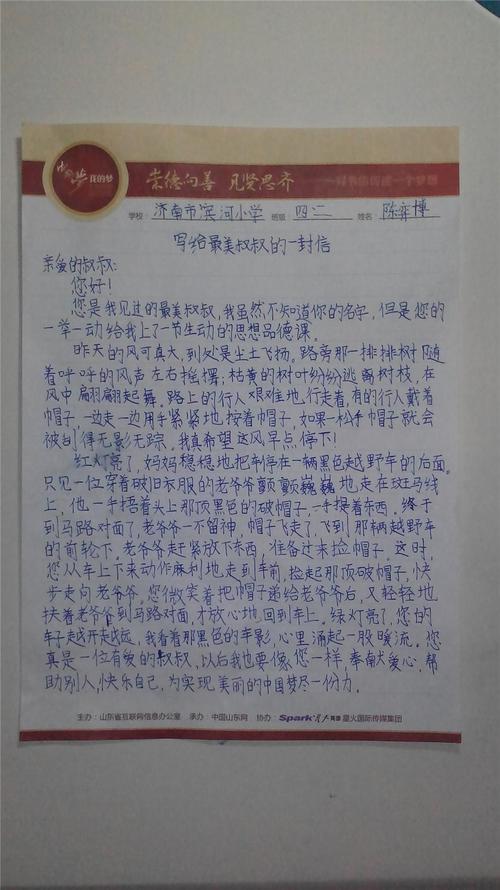 我的梦
崇德向善 见贤思齐
学校: 济南市滨河小学 班级 四.二 姓名 陈弈博
写给最美叔叔的一封信
亲爱的叔叔:
您好!
您是我见过的最美叔叔,我虽然不知道你的名字,但是您的
一举一动给我上了一节生动的思想品德课。
昨天的风可真大,到处是尘土飞扬,路旁那一排排树随
着呼呼的风声左右摇摆,枯黄的树叶纷纷逃离树枝,在
风中翩翩起舞。路上的行人艰难地行走着,有的行人戴着
帽子,一边走一边用手紧紧地按着帽子,如果一松手帽子就会
被刮得无影无踪。我真希望这风早点停下!
红灯亮了,妈妈稳稳地把车停在一辆黑色越野车的后面。
只见一位穿着破旧衣服的老爷爷颤颤巍巍地走在斑马线
上,他一手捂着头上那顶黑色的破帽子,一手提着东西。终于
到马路对面了,老爷爷一不留神,帽子飞走了,飞到那辆越野车
的前轮下。老爷爷赶紧放下东西,准备过来捡帽子。这时,
您从车上下来动作麻利地走到车前,捡起那顶破帽子,快
步走向老爷爷,您微笑着把帽子递给老爷爷后,又轻轻地
扶着老爷爷到马路对面,才放心地回到车上。绿灯亮了,您的
车子越开越远,我看着那黑色的车影,心里涌起一股暖流。您
真是一位有爱的叔叔,以后我也要像您一样,奉献爱心,帮
助别人,快乐自己,为实现美丽的中国梦尽一份力。
主办:山东省互联网信息办公室 承办:中国山东网 协办:Spark 星火国际传媒集团